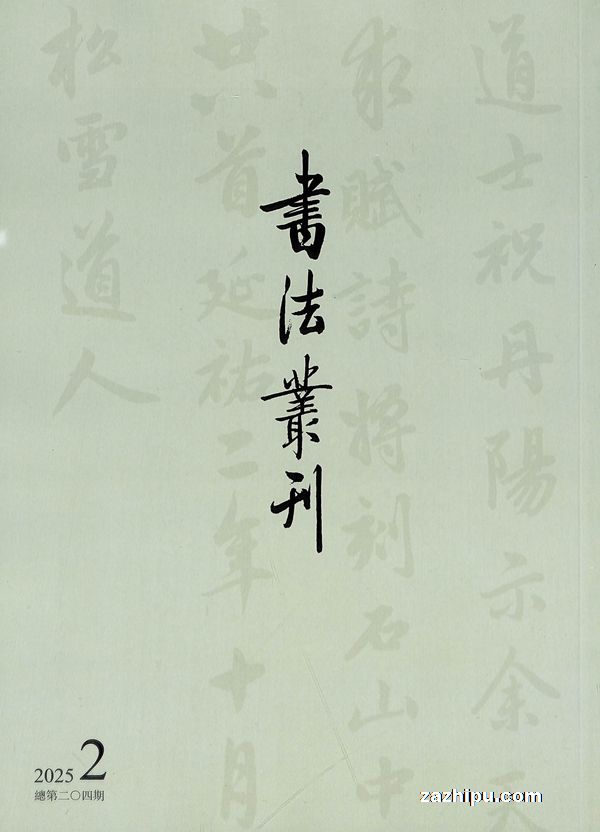 書法叢刊
道士祝丹陽示余天
求賦詩將刻石山中
廿八首延祐二年十月
松雪道人
2025 2
總第二〇四期
zazhipu.com